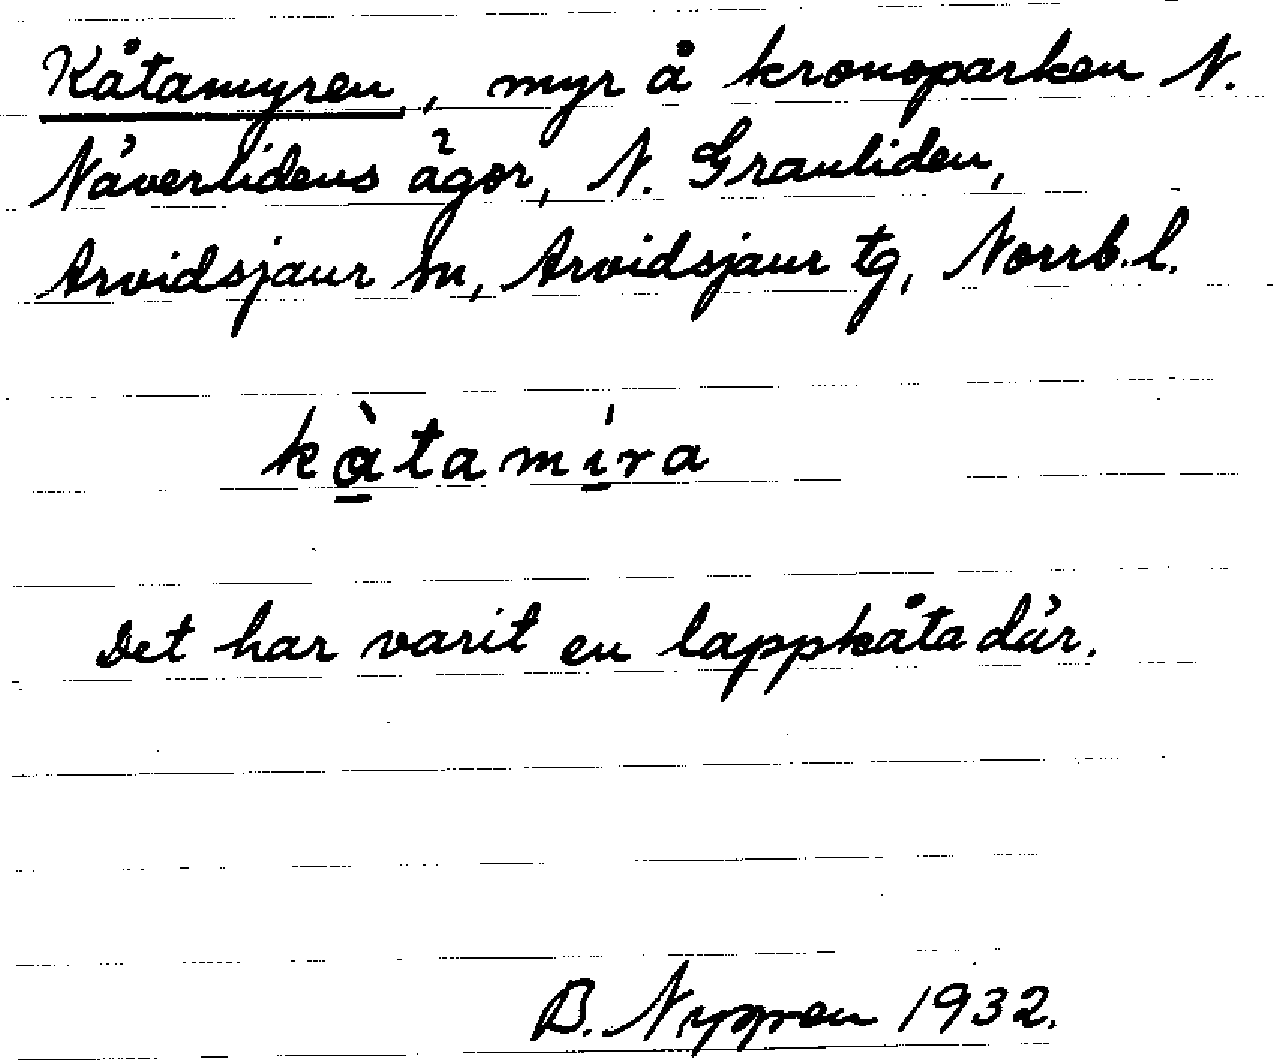 Kåtamyren, myr å kronoparken N.
Näverlidens ägor, N. Granliden,
Arvidsjaur sn, Arvidsjaur tg, Norrb. l.
kàtamíra
Det har varit en lappkåta där.
B. Nygren 1932.